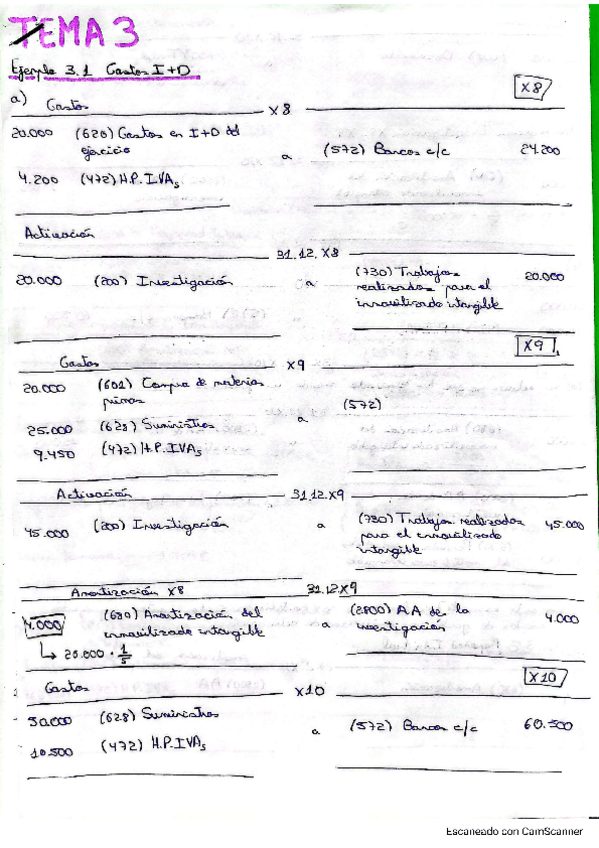 TEMA 3
Ejemplo 3.1 Gastos I+D
a) Gastos X8 X8
20.000 (620) Gastos en I+D del
ejercicio
a (572) Bancos c/c 24.200
4.200 (472) H.P. IVAs
Activación
31.12.X8
20.000 (200) Investigación a (730) Trabajos 20.000
realizados para el
inmovilizado intangible
X9
Gastos X9
20.000 (601) Compra de materias
primas
a (572)
25.000 (628) Suministros
9.450 (472) H.P. IVAs
Activación 31.12.X9
45.000 (200) Investigación a (730) Trabajos realizados 45.000
para el inmovilizado
intangible
Amortización X8 31.12.X9
4.000 (680) Amortización del a (2800) AA de la 4.000
inmovilizado intangible investigación
↳ 20.000 · 1/5
X10
Gastos X10
50.000 (628) Suministros a (572) Bancos c/c 60.500
10.500 (472) H.P. IVAs
Escaneado con CamScanner